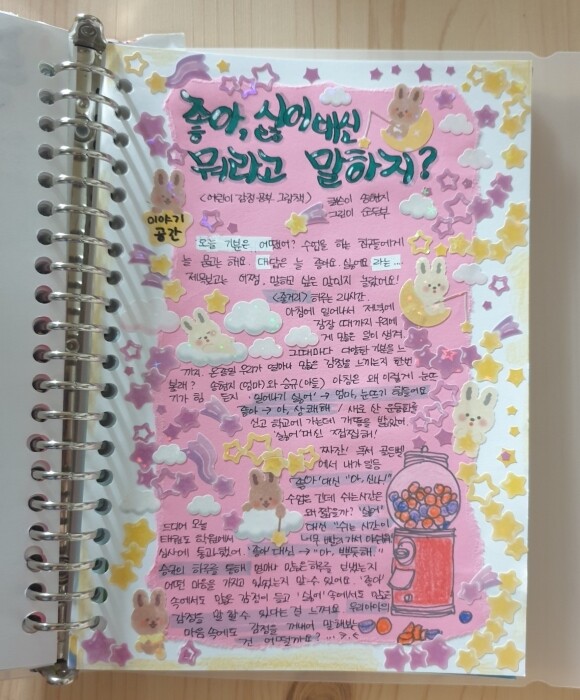 좋아, 싫어 대신
뭐라고 말하지?
<어린이 감정 공부 그림책> 글쓴이 송현지
그린이 순두부
이야기
공간
오늘 기분은 어땠어? 수업을 하는 친구들에게
늘 묻곤 해요. 대답은 늘 좋아요. 싫어요 라는...
제목보고는 어쩜, 말하고 싶은 말인지 놀랐어요!
<줄거리> 하루는 24시간.
아침에 일어나서 저녁에
잠잘 때까지 우리에
게 많은 일이 생겨.
그때마다 다양한 기분을 느
끼지. 온종일 우리가 얼마나 많은 감정을 느끼는지 한번
볼래? 송현지 (엄마)와 승규(아들) 아침은 왜 이렇게 눈뜨
기가 힘 든지 · 일어나기 싫어 → 엄마, 눈뜨기 힘들어요
좋아 → 아, 상쾌해 / 새로 산 운동화를
신고 학교에 가는데 개똥을 밟았어.
'싫어' 대신 찝찝해!
짜잔! 독서 골든벨
에서 내가 일등
'좋아' 대신 "아, 신나!"
수업은 긴데 쉬는시간은
왜 짧을까? '싫어'
대신 "쉬는 시간이
너무 빨리 가서 아쉬워
드디어 오늘
태권도 학원에서
심사에 통과했어. '좋아' 대신 → "아, 뿌듯해."
승규의 하루를 통해 얼마나 많은 하루를 보냈는지
어떤 마음을 가지고 있었는지 알 수 있어요. '좋아'
속에서도 많은 감정이 들고 '싫어' 속에서도 많은
감정을 말할 수 있다는 걸 느껴요. 우리아이의
마음 속에도 감정을 꺼내어 말해보는
건 어떨까요? ... >.<